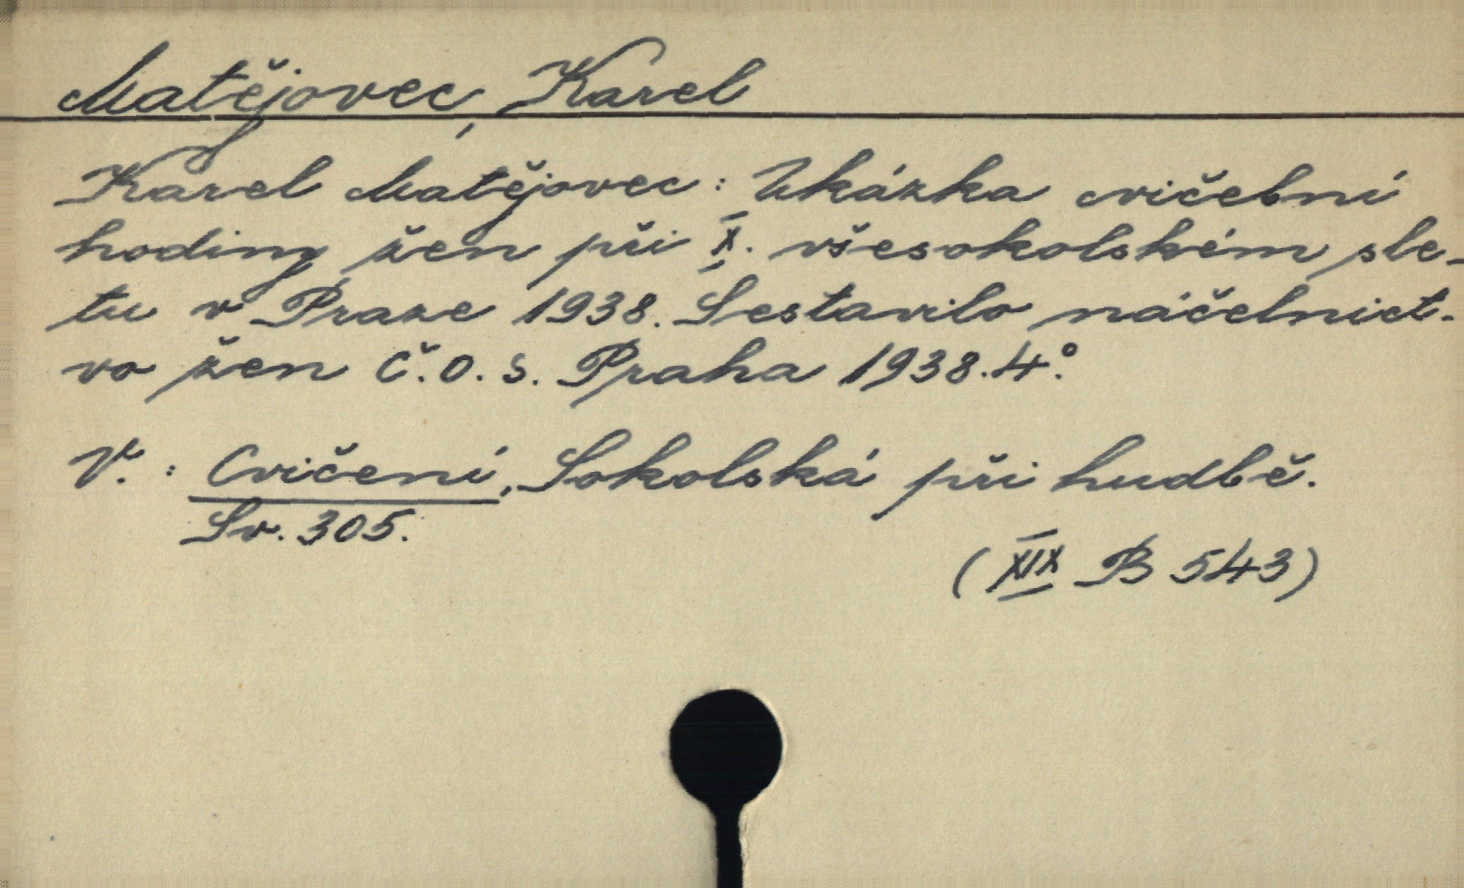 Matějovec, Karel
Karel Matějovec: Ukázka cvičební
hodiny žen při X. všesokolském sle-
tu v Praze 1938. Sestavilo náčelnict-
vo žen Č.O.S. Praha 1938. 4°.
V. : Cvičení, Sokolská při hudbě.
Sv. 305.
(XIX B 543)